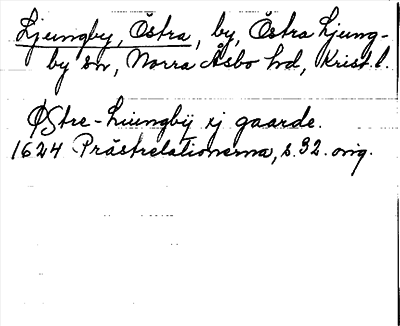 Ljungby, Östra, by, Östra Ljung-
by sn, Norra Åsbo hd, Krist. l.
Østre-Liungbÿ ej gaarde.
1624 Prästrelationerna, s. 32. orig.